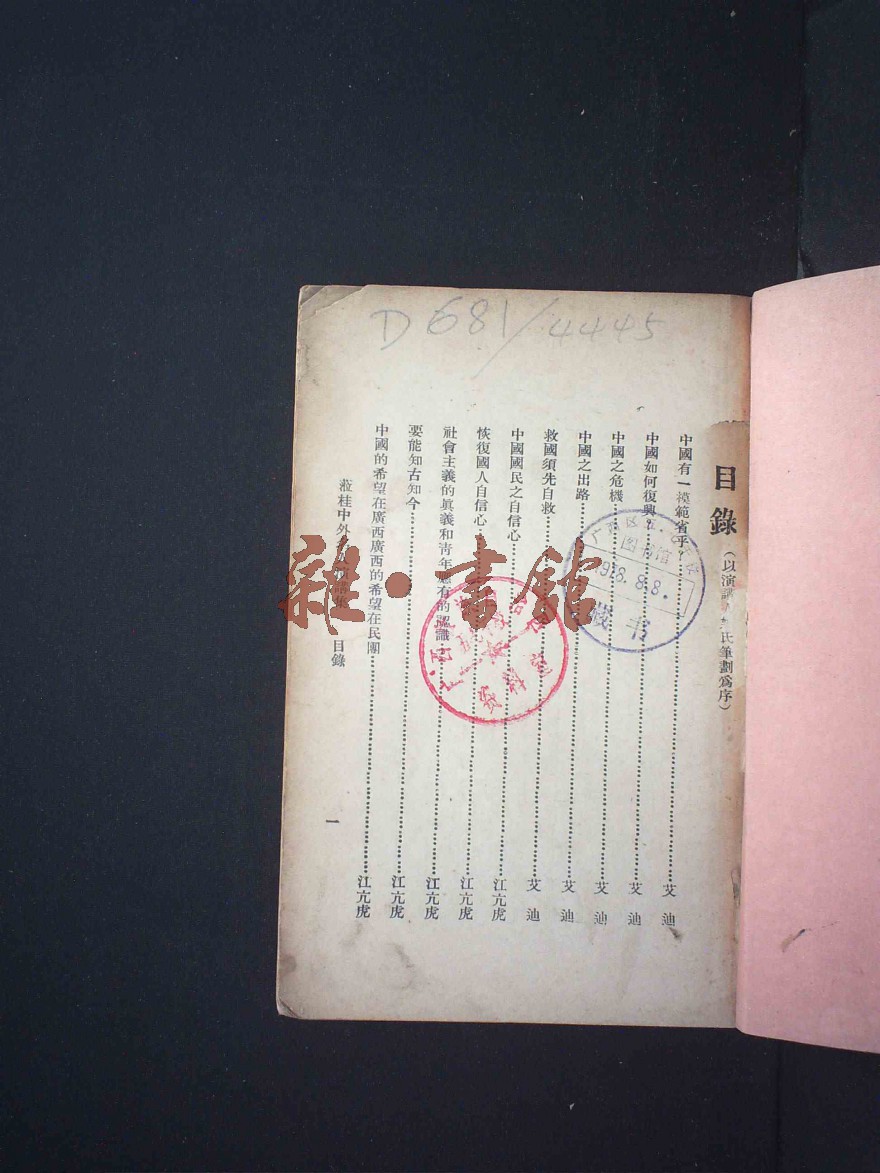 D 681/4445
目錄
（以演講
氏筆劃爲序）
中國有一模範省乎？……艾迪
中國如何復興？……艾迪
中國之危機……艾迪
中國之出路……艾迪
救國須先自救……艾迪
中國國民之自信心……江亢虎
恢復國人自信心……江亢虎
社會主義的眞義和靑年應有的認識……江亢虎
要能知古知今……江亢虎
中國的希望在廣西廣西的希望在民團……江亢虎
蒞桂中外名人演講集 目錄
一
图书馆
1958.8.8.
藏书
资料室
雜·書館